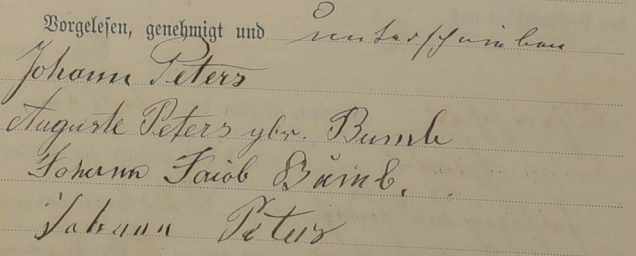 Vorgelesen, genehmigt und unterschrieben
Johann Peters
Auguste Peters gbr. Bumb
Johann Jacob Bumb.
Johann Peters